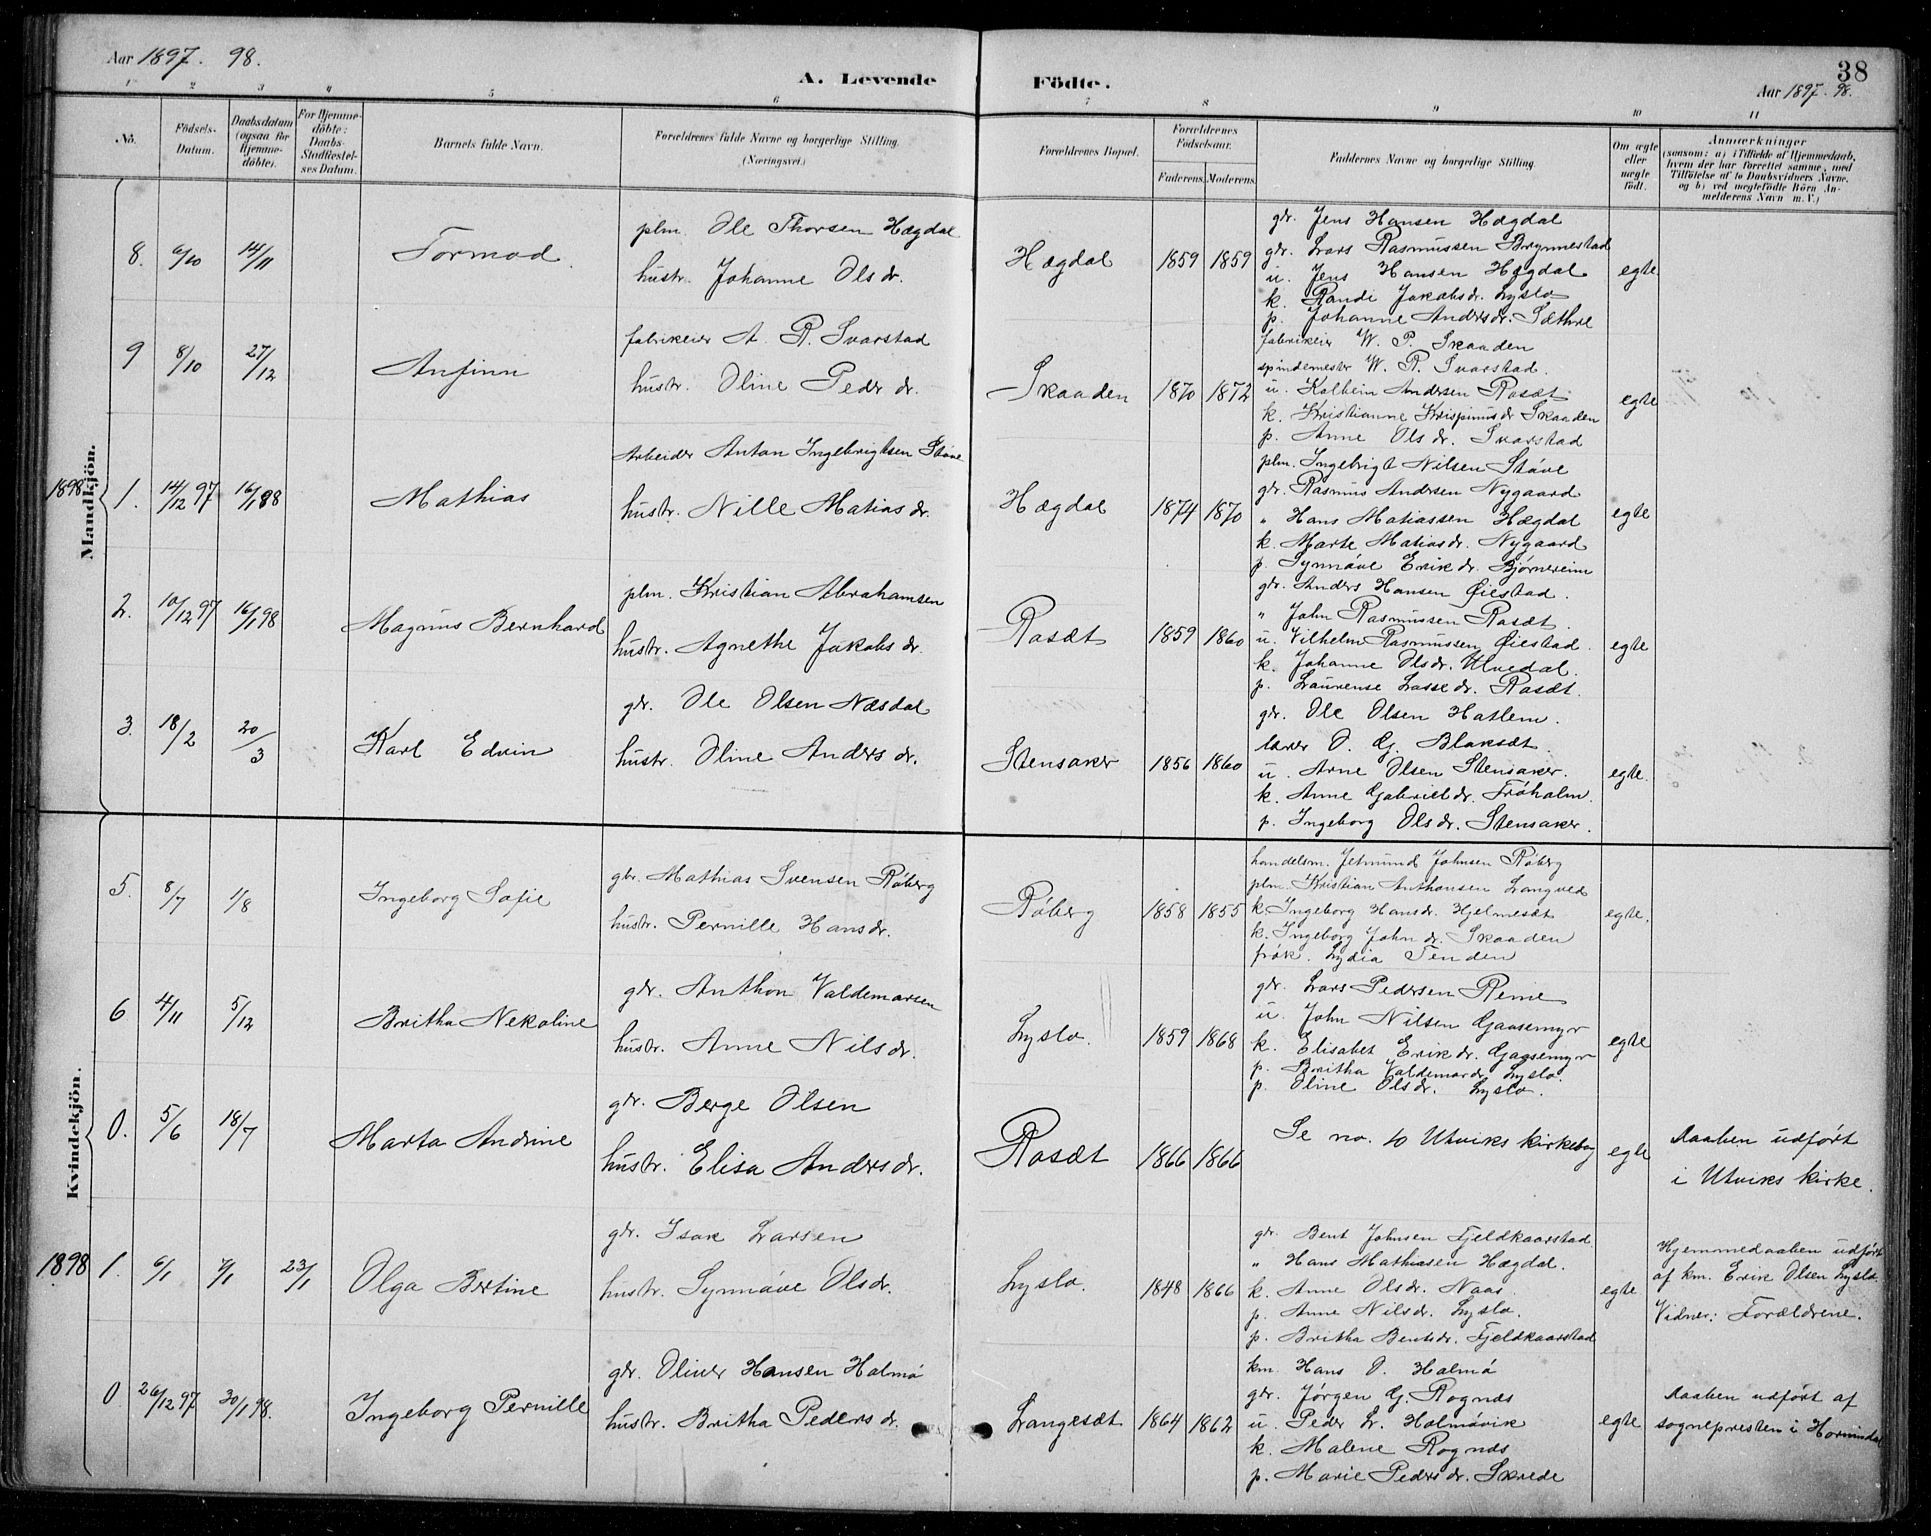 Aar 1897. 98.
A. Levende
Födte.
38
Aar 1897. 98.
1 2 3 4 5 6 7 8 9 10 11
No.
Födsels-Datum.
Daabsdatum (ogsaa for Hjemme-döbte).
For Hjemme-döbte: Daabs-Stadfæstel-ses Datum.
Barnets fulde Navn.
Forældrenes fulde Navne og borgerlige Stilling (Næringsvei.)
Forældrenes Bopæl.
Forældrenes Födselsaar.
Faderens. Moderens.
Faddernes Navne og borgerlige Stilling.
Om ægte eller uægte födt.
Anmærkninger
(saasom: a) i Tilfælde af Hjemmedaab, hvem der har forrettet samme, med Tilföielse af to Daabsvidners Navne. og b) ved uægtefödte Börn An-melderens Navn m. V.)
Mandkjön.
8. 6/10 14/11 Tormod.
plm. Ole Thorsen Hægdal
hustr. Johanne Olsdr.
Hægdal 1859 1859
gdr. Jens Hansen Hægdal
gdr. Lars Rasmussen Brynnestad
u. Jens Hansen Hægdal
k. Randi Jakobsdr. Lyslo
p. Johanne Andersdr. Sæthre
egte
9 8/10 27/12 Anfinn
fabrikeier A. R. Svarstad
hustr. Oline Peder dr.
Skaaden 1870 1872
fabrikeier W. P. Skaaden
spindemester W. R. Svarstad.
u. Kolbein Andersen Rosæt
k. Kristianne Krispinusdr Skaaden
p. Anne Olsdr. Svarstad
egte
1898 1. 14/12 97 16/1 98 Mathias
Arbeider Anton Ingebrigtsen Støve
hustr. Nille Matiasdr.
Hægdal 1874 1870
plm. Ingebrigt Nilsen Støve
gdr. Rasmus Andersen Nygaard
" Hans Matiassen Hægdal
k. Marte Matiasdr. Nygaard
p. Synnøve Erikdr. Bjørnereim
egte
2. 10/12 97 16/1 98 Magnus Bernhard
plm. Kristian Abrahamsen
hustr. Agnethe Jakobsdr.
Rosæt 1859 1860
gdr. Anders Hansen Øiestad.
" John Rasmussen Rosæt.
u. Vilhelm Rasmussen Øiestad.
k. Johanne Olsdr. Ulvedal.
p. Laurense Lassedr. Rosæt.
egte
3. 18/2 20/3 Karl Edvin
gdr. Ole Olsen Næsdal
hustr. Oline Andersdr.
Stensaker 1856 1860
gdr. Ole Olsen Hatlem.
lærer O. G. Blaksæt.
u. Arne Olsen Stensaker.
k. Anne Gabrieldr. Frøholm.
p. Ingeborg Olsdr. Stensaker.
egte.
Kvindekjön.
5. 8/7 1/8 Ingeborg Sofie
gbr. Mathias Svensen Røberg
hustr. Pernille Hansdr.
Røberg 1858 1855
handelsm. Jetmund Johnsen Røberg
plm. Kristian Anthonsen Langved
k. Ingeborg Hansdr. Hjelmesæt
k. Ingeborg Johndr. Skaaden
frøk. Lydia Tenden
egte.
6 4/11 5/12 Britha Nekoline
gdr. Anthon Valdemarsen
hustr. Anne Nilsdr.
Lyslo. 1859 1868
gdr. Lars Pedersen Reme
u. John Nilsen Gaasemyr
k. Elisabet Erikdr. Gaasemyr
p. Britha Valdemardr. Lyslo.
p. Oline Olsdr. Lyslo.
egte
0. 5/6 18/7 Marta Andrine
gdr. Berge Olsen
hustr. Elisa Andersdr.
Rosæt 1866 1866
Se no. 10 Utviks kirkebog
egte
Daaben udført
i Utviks kirke.
1898 1. 6/1 7/1 23/1 Olga Bertine
gdr. Isak Larsen
hustr. Synnøve Olsdr.
Lyslo. 1848 1866
gdr. Bent Johnsen Fjeldkaarstad
" Hans Mathiasen Hægdal.
k. Anne Olsdr. Naas.
p. Anne Nilsdr. Lyslo.
p. Britha Bentsdr. Fjeldkaarstad
egte
Hjemmedaaben udført
af km. Erik Olsen Lyslo.
Vidner: Forældrene.
0. 26/12 97 30/1 98. Ingeborg Pernille
gdr. Oliver Hansen Holmø
hustr. Britha Pedersdr.
Langesæt 1864 1862
km. Hans O. Holmø
gdr. Jørgen G. Rognæs
u. Peder Lr. Holmøvik
k. Malene Rognæs
p. Marie Pedersdr. Skrede
egte
Daaben udført af
sognepresten i Hornindal